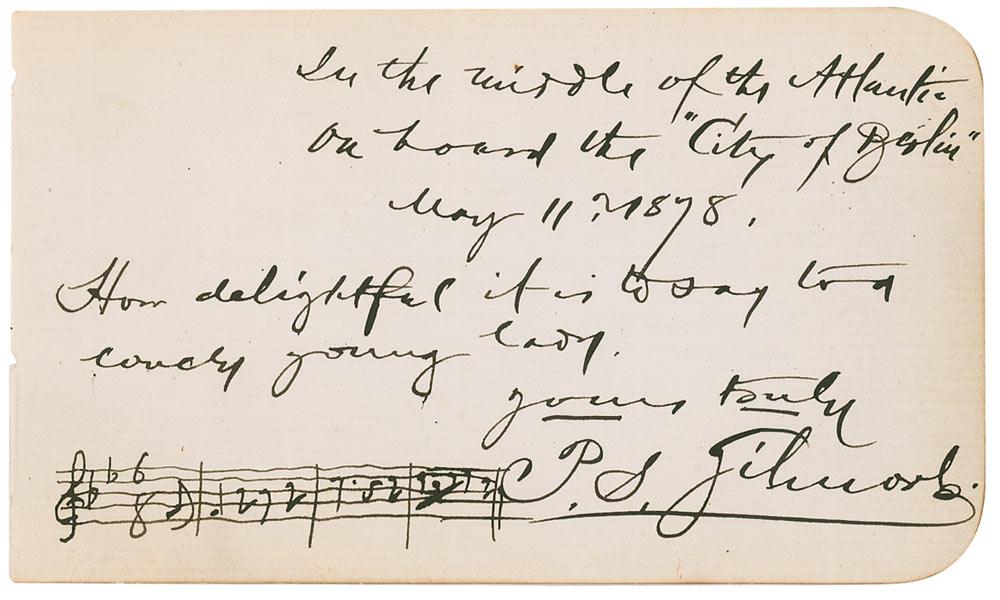 In the middle of the Atlantic
on board the "City of Berlin"
May 11th 1878.
How delightful it is to say to a
lovely young lady.
yours truly
P. S. Gilmore.
6
8